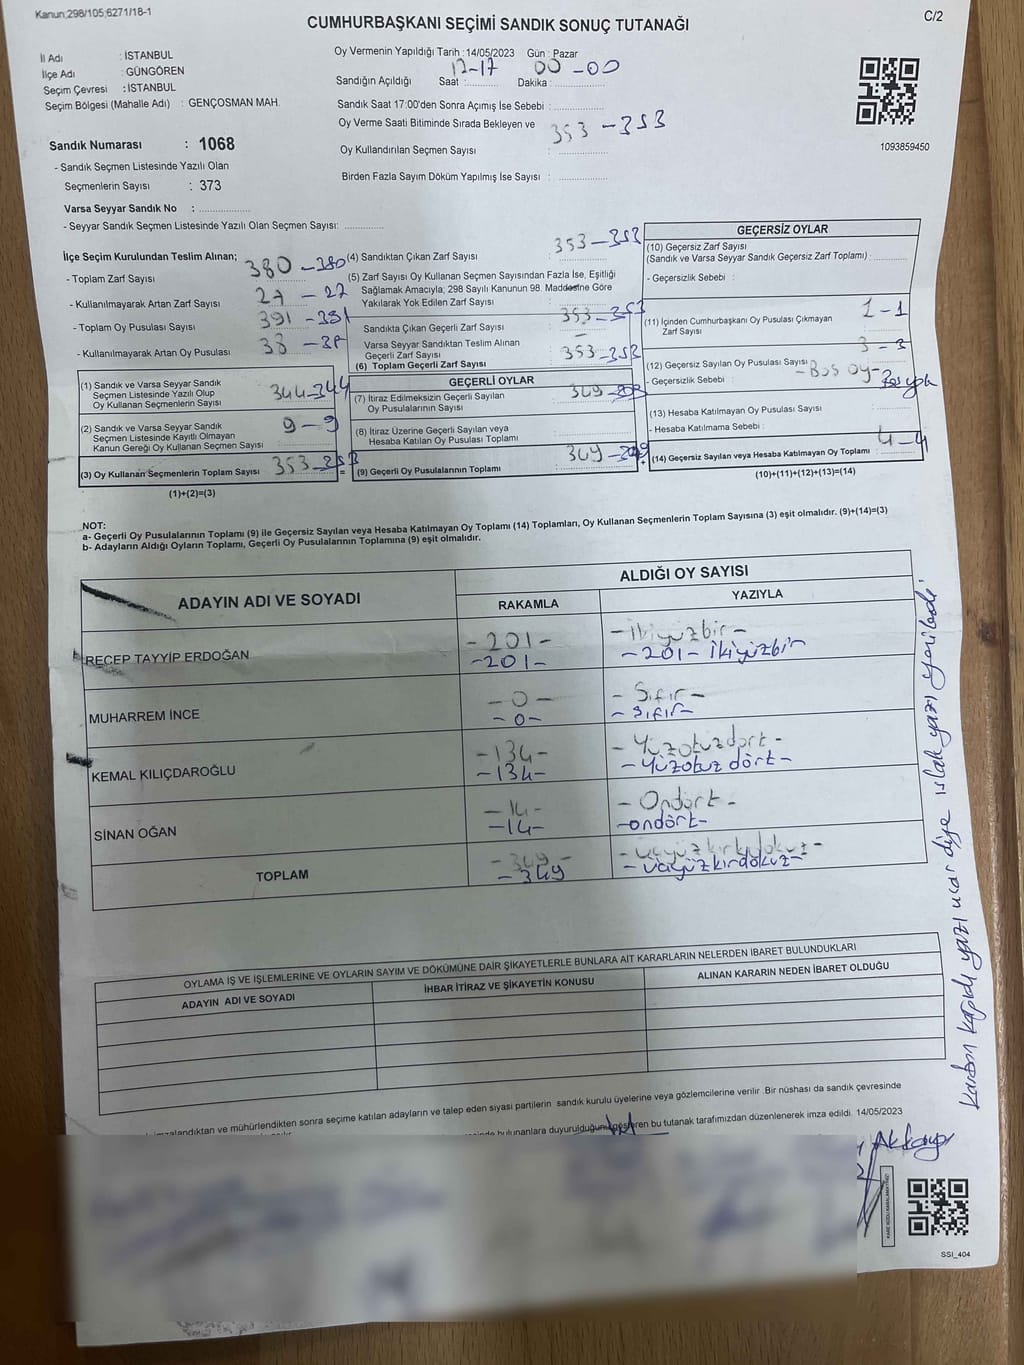 Kanun;298/105;6271/18-1
C/2
CUMHURBAŞKANI SEÇİMİ SANDIK SONUÇ TUTANAĞI
İl Adı : İSTANBUL
İlçe Adı : GÜNGÖREN
Seçim Çevresi : İSTANBUL
Seçim Bölgesi (Mahalle Adı) : GENÇOSMAN MAH.
Oy Vermenin Yapıldığı Tarih : 14/05/2023 Gün : Pazar
Sandığın Açıldığı Saat : 17-17 Dakika : 00-00
Sandık Saat 17:00'den Sonra Açımış İse Sebebi :
Oy Verme Saati Bitiminde Sırada Bekleyen ve
Oy Kullandırılan Seçmen Sayısı : 353-353
Birden Fazla Sayım Döküm Yapılmış İse Sayısı :
1093859450
Sandık Numarası : 1068
- Sandık Seçmen Listesinde Yazılı Olan
Seçmenlerin Sayısı : 373
Varsa Seyyar Sandık No :
- Seyyar Sandık Seçmen Listesinde Yazılı Olan Seçmen Sayısı:
İlçe Seçim Kurulundan Teslim Alınan;
- Toplam Zarf Sayısı 380-380
- Kullanılmayarak Artan Zarf Sayısı 27-27
- Toplam Oy Pusulası Sayısı 391-391
- Kullanılmayarak Artan Oy Pusulası 38-38
(1) Sandık ve Varsa Seyyar Sandık
Seçmen Listesinde Yazılı Olup
Oy Kullanan Seçmenlerin Sayısı 344-344
(2) Sandık ve Varsa Seyyar Sandık
Seçmen Listesinde Kayıtlı Olmayan
Kanun Gereği Oy Kullanan Seçmen Sayısı 9-9
(3) Oy Kullanan Seçmenlerin Toplam Sayısı 353-353
(1)+(2)=(3)
(4) Sandıktan Çıkan Zarf Sayısı 353-353
(5) Zarf Sayısı Oy Kullanan Seçmen Sayısından Fazla İse, Eşitliği
Sağlamak Amacıyla; 298 Sayılı Kanunun 98. Maddesine Göre
Yakılarak Yok Edilen Zarf Sayısı
Sandıkta Çıkan Geçerli Zarf Sayısı 353-353
Varsa Seyyar Sandıktan Teslim Alınan
Geçerli Zarf Sayısı
(6) Toplam Geçerli Zarf Sayısı 353-353
GEÇERLİ OYLAR
(7) İtiraz Edilmeksizin Geçerli Sayılan
Oy Pusulalarının Sayısı 349
(8) İtiraz Üzerine Geçerli Sayılan veya
Hesaba Katılan Oy Pusulası Toplamı
(9) Geçerli Oy Pusulalarının Toplamı 349-349
GEÇERSİZ OYLAR
(10) Geçersiz Zarf Sayısı
(Sandık ve Varsa Seyyar Sandık Geçersiz Zarf Toplamı) :
- Geçersizlik Sebebi :
(11) İçinden Cumhurbaşkanı Oy Pusulası Çıkmayan
Zarf Sayısı 1-1
(12) Geçersiz Sayılan Oy Pusulası Sayısı : 3-3
- Geçersizlik Sebebi : -Boş oy-
(13) Hesaba Katılmayan Oy Pusulası Sayısı
- Hesaba Katılmama Sebebi :
(14) Geçersiz Sayılan veya Hesaba Katılmayan Oy Toplamı 4-4
(10)+(11)+(12)+(13)=(14)
NOT:
a- Geçerli Oy Pusulalarının Toplamı (9) ile Geçersiz Sayılan veya Hesaba Katılmayan Oy Toplamı (14) Toplamları, Oy Kullanan Seçmenlerin Toplam Sayısına (3) eşit olmalıdır. (9)+(14)=(3)
b- Adayların Aldığı Oyların Toplamı, Geçerli Oy Pusulalarının Toplamına (9) eşit olmalıdır.
ADAYIN ADI VE SOYADI
ALDIĞI OY SAYISI
RAKAMLA
YAZIYLA
RECEP TAYYİP ERDOĞAN -201- -İkiyüzbir-
-201- -201- İkiyüzbir
MUHARREM İNCE -0- -Sıfır-
-0- -Sıfır-
KEMAL KILIÇDAROĞLU -134- -Yüzotuzdört-
-134- -Yüzotuz dört-
SİNAN OĞAN -14- -Ondört-
-14- -ondört-
TOPLAM -349- -üçyüzkırkdokuz-
-349
Karbon kağıdı yazı uçar diye ıslak yazı
OYLAMA İŞ VE İŞLEMLERİNE VE OYLARIN SAYIM VE DÖKÜMÜNE DAİR ŞİKAYETLERLE BUNLARA AİT KARARLARIN NELERDEN İBARET BULUNDUKLARI
ADAYIN ADI VE SOYADI
İHBAR İTİRAZ VE ŞİKAYETİN KONUSU
ALINAN KARARIN NEDEN İBARET OLDUĞU
ve mühürlendikten sonra seçime katılan adayların ve talep eden siyasi partilerin sandık kurulu üyelerine veya gözlemcilerine verilir .Bir nüshası da sandık çevresinde
bulunanlara duyurulduğunu gösteren bu tutanak tarafımızdan düzenlenerek imza edildi. 14/05/2023
SSI_404